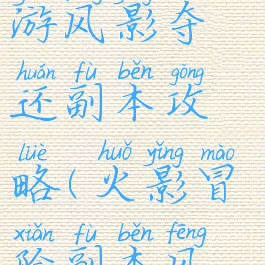 游风影夺
huán fù běn gōng
还副本攻
lüè huǒ yǐng mào
略(火影冒
xiǎn fù běn fēng
险副本风